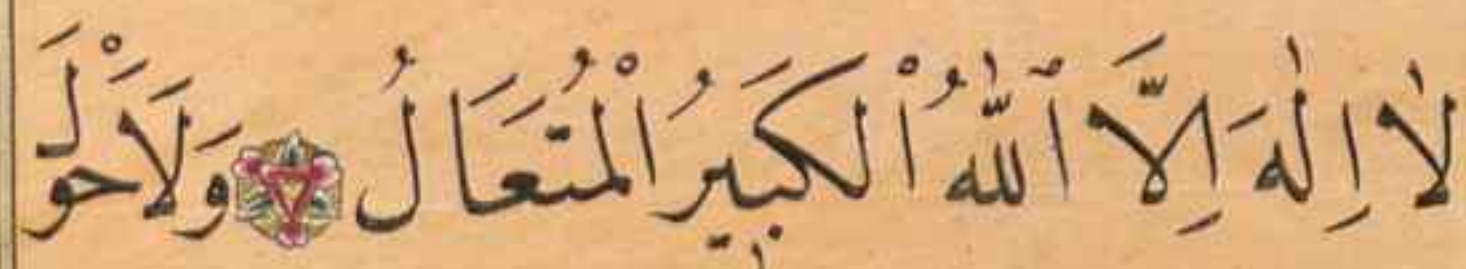 لَا اِلٰهَ اِلَّا ٱللّٰهُ ٱلْكَبِيرُ الْمُتَعَالُ وَلَاحَوْلَ